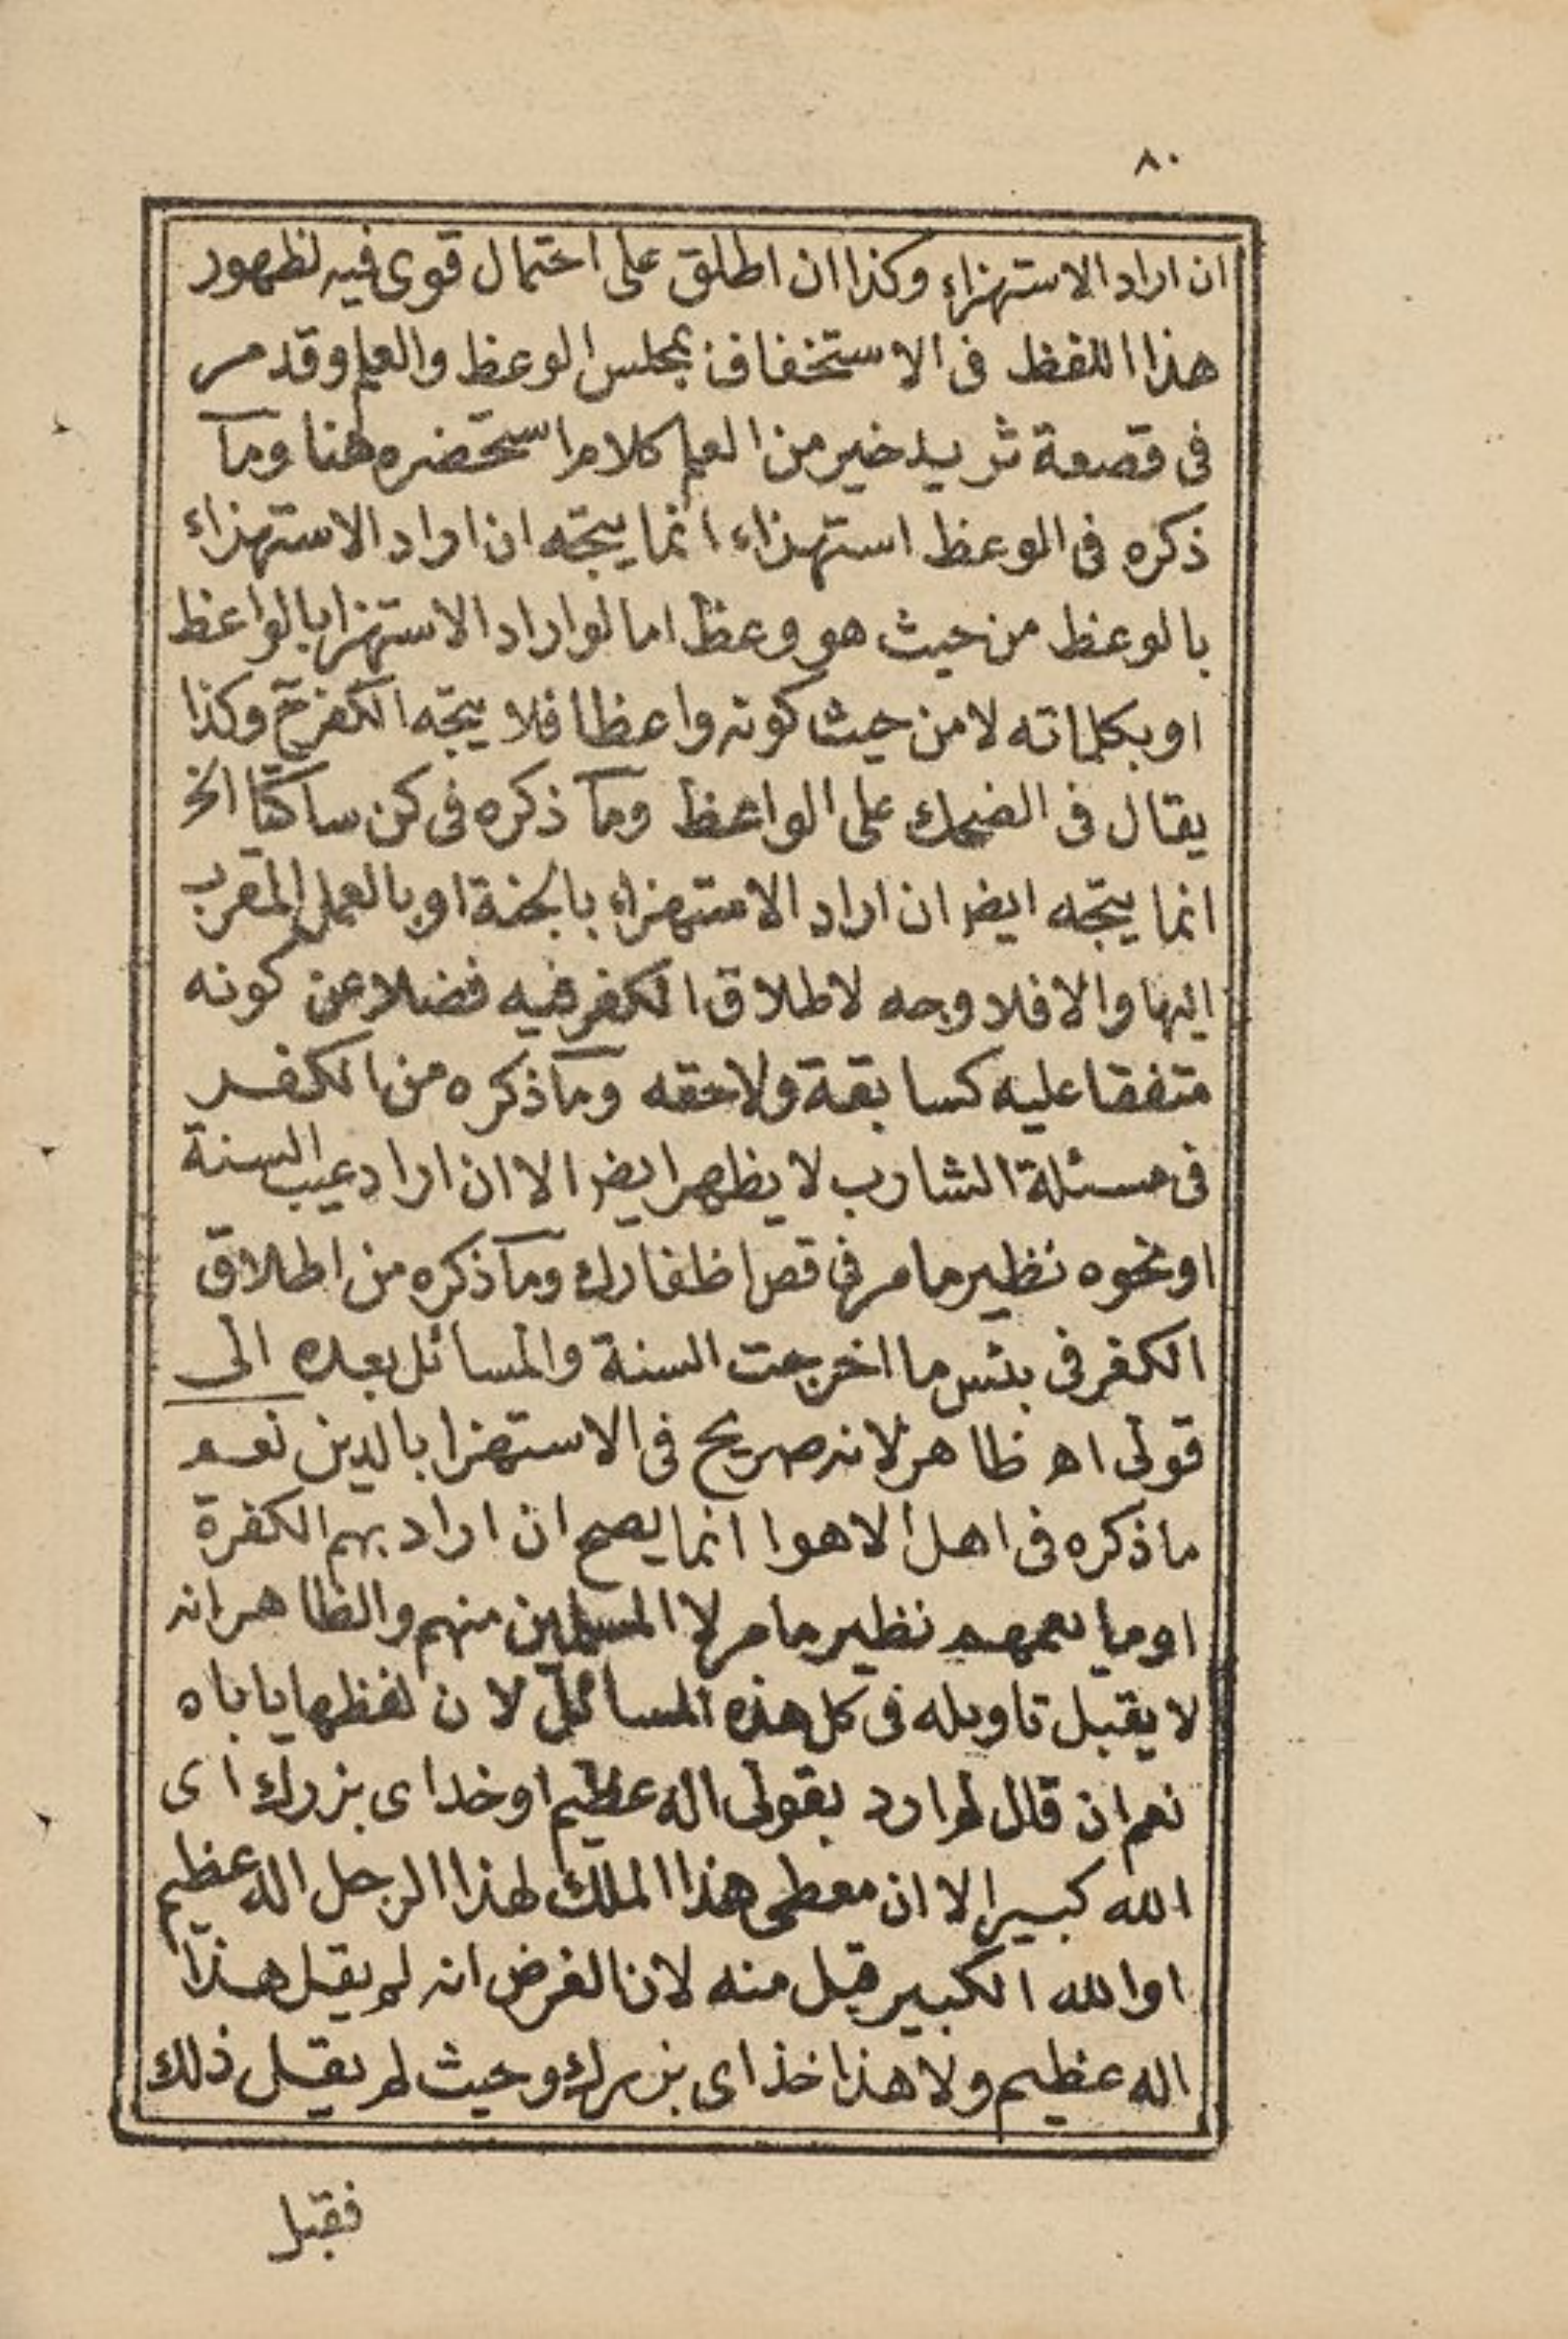 ٨٠
ان اراد الاستهزاء وكذا ان اطلق على احتمال قوى فيه لظهور
هذا اللفظ فى الاستخفاف بمجلس الوعظ والعلم وقد مر
فى قصعة ثريد خير من العلم كلام استحضره هنا وما
ذكره فى الوعظ استهزاء انما يتجه ان اراد الاستهزاء
بالوعظ من حيث هو وعظ اما لو اراد الاستهزا بالواعظ
او بكلماته لا من حيث كونه واعظا فلا يتجه الكفر ح وكذا
يقال فى الضحك على الواعظ وما ذكره فى كن ساكتا الخ
انما يتجه ايضا ان اراد الاستهزاء بالجنة او بالعمل المقرب
اليها والا فلا وجه لاطلاق الكفر فيه فضلا عن كونه
متفقا عليه كسابقة ولاحقه وما ذكره من الكفر
فى مسئلة الشارب لا يظهر ايضا الا ان اراد عيب السنة
او نحوه نظير ما مر فى قص اظفارك وما ذكره من اطلاق
الكفر فى بئس ما اخرجت السنة والمسائل بعده الى
قولى اه ظاهر لانه صريح فى الاستهزا بالدين نعم
ما ذكره فى اهل الاهوا انما يصح ان اراد بهم الكفرة
او ما يعمهم نظير ما مر لا المسلمين منهم والظاهر انه
لا يقبل تاويله فى كل هذه المسائل لان لفظها ياباه
نعم ان قال لم ارد بقولى اله عظيم او خداى بزرك اى
الله كبير الا ان معطى هذا الملك لهذا الرجل الله عظيم
او الله الكبير قبل منه لان الفرض انه لم يقل هذا
اله عظيم ولا هذا خذاى بزرك وحيث لم يقل ذلك
فقبل